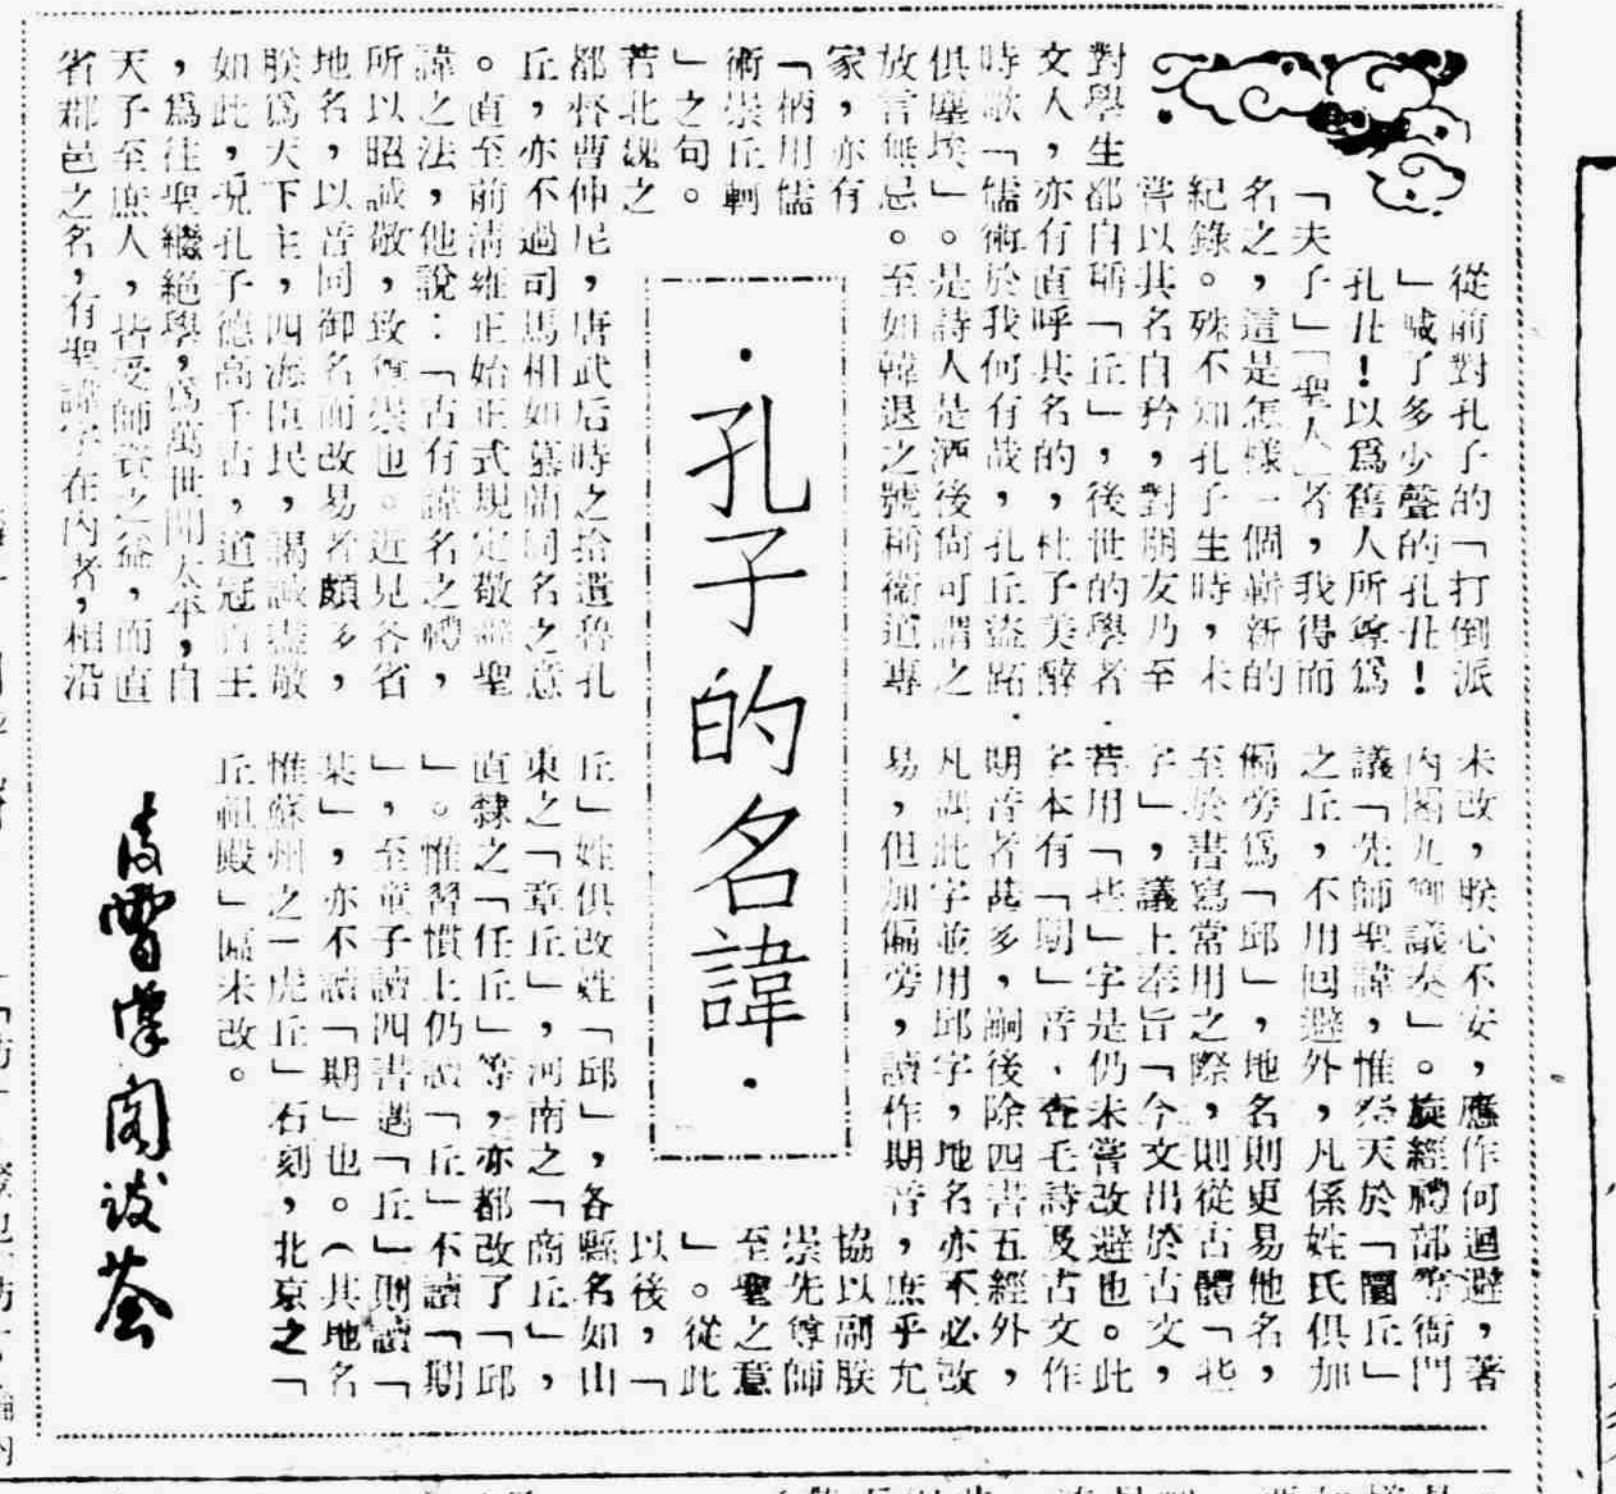 ・孔子的名諱・
從前對孔子的「打倒派
」喊了多少聲的孔丘！
孔丘！以爲舊人所尊爲
「夫子」「聖人」者，我得而
名之，這是怎樣一個嶄新的
紀錄。殊不知孔子生時，未
嘗以其名自矜，對朋友乃至
對學生都自稱「丘」，後世的學者
文人，亦有直呼其名的，杜子美醉
時歌「儒術於我何有哉，孔丘盜跖
俱塵埃」。是詩人是洒後尙可謂之
放言無忌。至如韓退之號稱衞道專
家，亦有
「柄用儒
術崇丘軻
」之句。
若北魏之
都督曹仲尼，唐武后時之拾遺魯孔
丘，亦不過司馬相如慕藺同名之意
。直至前淸雍正始正式規定敬避聖
諱之法，他說：「古有諱名之禮，
所以昭誠敬，致尊崇也。近見各省
地名，以音同御名而改易者頗多，
朕爲天下主，四海臣民，竭誠盡敬
如此，况孔子德高千古，道冠百王
，爲往聖繼絕學，爲萬世開太平，自
天子至庶人，皆受師資之益，而直
省郡邑之名，有聖諱字在內者，相沿
未改，朕心不安，應作何迴避，著
內閣九卿議奏」。旋經禮部等衙門
議「先師聖諱，惟祭天於「圜丘」
之丘，不用回避外，凡係姓氏俱加
偏旁爲「邱」，地名則更易他名，
至於書寫常用之際，則從古體「丠
子」，議上奉旨「今文出於古文，
若用「丠」字是仍未嘗改避也。此
字本有「期」音．查毛詩及古文作
期音者甚多，嗣後除四書五經外，
凡遇此字並用邱字，地名亦不必改
易，但加偏旁，讀作期音，庶乎允
協以副朕
崇先尊師
至聖之意
」。從此
以後，「
丘」姓俱改姓「邱」，各縣名如山
東之「章丘」，河南之「商丘」，
直隸之「任丘」等，亦都改了「邱
」。惟習慣上仍讀「丘」不讀「期
」，至童子讀四書遇「丘」則讀「
某」，亦不讀「期」也。（其地名
惟蘇州之「虎丘」石刻，北京之「
丘祖殿」匾未改。
凌霄漢閣談薈